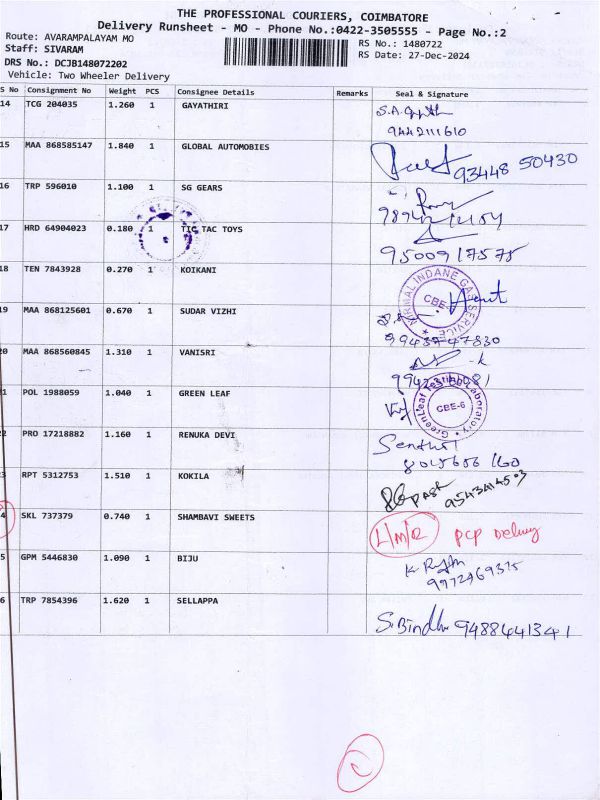 THE PROFESSIONAL COURIERS, COIMBATORE
Delivery Runsheet - MO - Phone No.:0422-3505555 - Page No.:2
Route: AVARAMPALAYAM MO
Staff: SIVARAM
RS No.: 1480722
DRS No.: DCJB148072202
RS Date: 27-Dec-2024
Vehicle: Two Wheeler Delivery
S No Consignment No Weight PCS Consignee Details Remarks Seal & Signature
14 TCG 204035 1.260 1 GAYATHIRI
9442111610
15 MAA 868585147 1.840 1 GLOBAL AUTOMOBIES
93448 50430
16 TRP 596010 1.100 1 SG GEARS
17 HRD 64904023 0.180 1 TIC TAC TOYS
9500917575
18 TEN 7843928 0.270 1 KOIKANI
NIRMAL INDANE GAS SERVICE
CBE-
19 MAA 868125601 0.670 1 SUDAR VIZHI
9943747830
20 MAA 868560845 1.310 1 VANISRI
1 POL 1988059 1.040 1 GREEN LEAF
GreenLeaf Testing Laboratory
CBE-6
2 PRO 17218882 1.160 1 RENUKA DEVI
Senthil
8015656160
3 RPT 5312753 1.510 1 KOKILA
4 SKL 737379 0.740 1 SHAMBAVI SWEETS
PCP Delivery
5 GPM 5446830 1.090 1 BIJU
6 TRP 7854396 1.620 1 SELLAPPA
S.Bindhu 9488441341